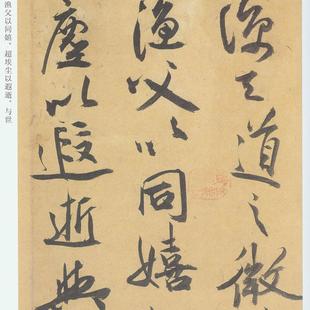 諒天道之微
漁父以同嬉
塵以遐逝與
渔父以同嬉，超埃尘以遐逝，与世